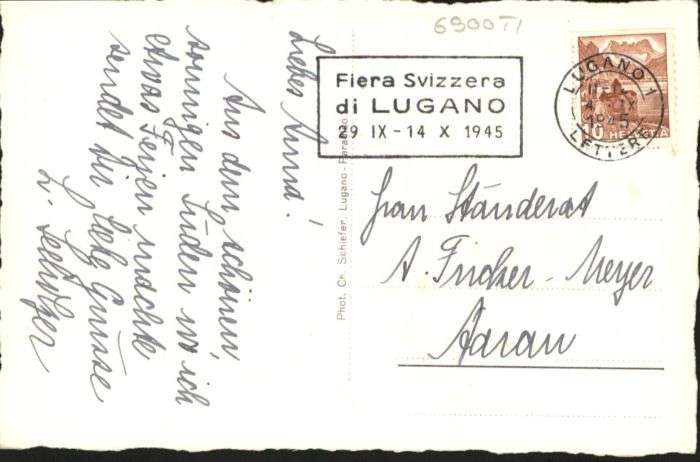 6900 TI
Fiera Svizzera
di LUGANO
29 IX - 14 X 1945
LUGANO 1
IX
1945
LETTERE
10 HELVETIA
Liebes Anna!
Aus dem schönen,
sonnigen Süden wo ich
etwas Ferien machte
sendet Dir liebe Grüsse
L.
Phot. Ch. Schiefer, Lugano-Paradiso
Frau Ständerat
A. Fricker-Meyer
Aarau